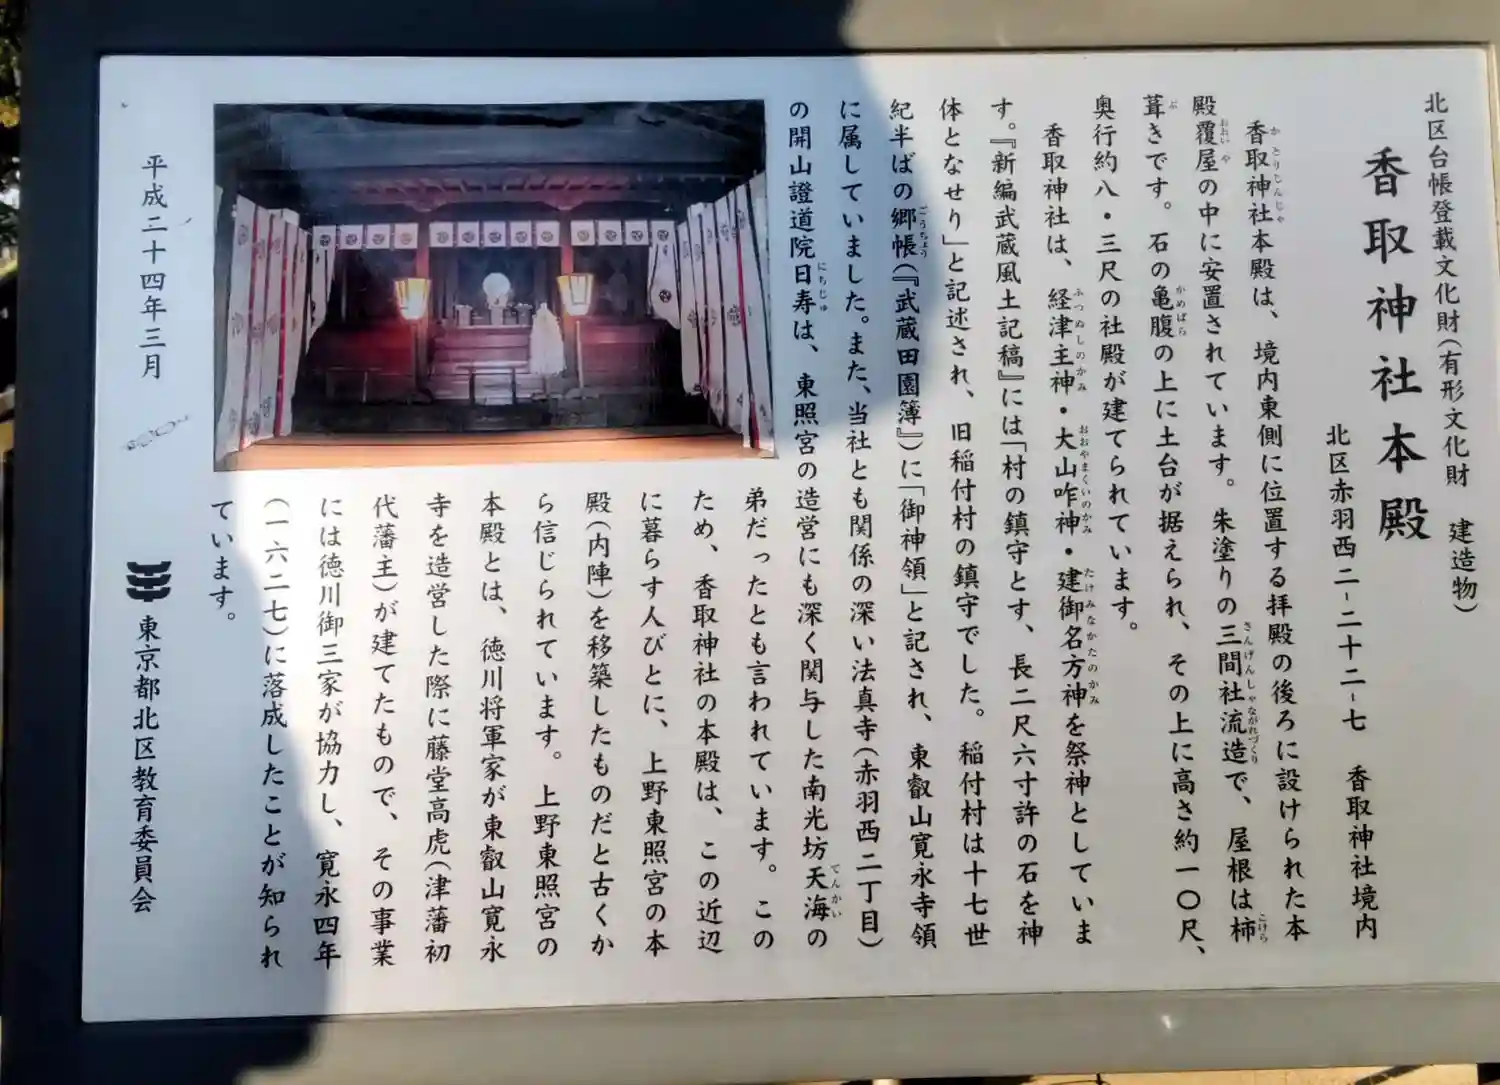 北区台帳登載文化財(有形文化財 建造物)
香取神社本殿
北区赤羽西二-二十二-七 香取神社境内
香取神社本殿は、境内東側に位置する拝殿の後ろに設けられた本
殿覆屋の中に安置されています。朱塗りの三間社流造で、屋根は柿
葺きです。石の亀腹の上に土台が据えられ、その上に高さ約一〇尺、
奥行約八・三尺の社殿が建てられています。
香取神社は、経津主神・大山咋神・建御名方神を祭神としていま
す。『新編武蔵風土記稿』には「村の鎮守とす、長二尺六寸許の石を神
体となせり」と記述され、旧稲付村の鎮守でした。稲付村は十七世
紀半ばの郷帳(『武蔵田園簿』)に「御神領」と記され、東叡山寛永寺領
に属していました。また、当社とも関係の深い法真寺(赤羽西二丁目)
の開山證道院日寿は、東照宮の造営にも深く関与した南光坊天海の
弟だったとも言われています。この
ため、香取神社の本殿は、この近辺
に暮らす人びとに、上野東照宮の本
殿(内陣)を移築したものだと古くか
ら信じられています。上野東照宮の
本殿とは、徳川将軍家が東叡山寛永
寺を造営した際に藤堂高虎(津藩初
代藩主)が建てたもので、その事業
には徳川御三家が協力し、寛永四年
(一六二七)に落成したことが知られ
ています。
平成二十四年三月
東京都北区教育委員会